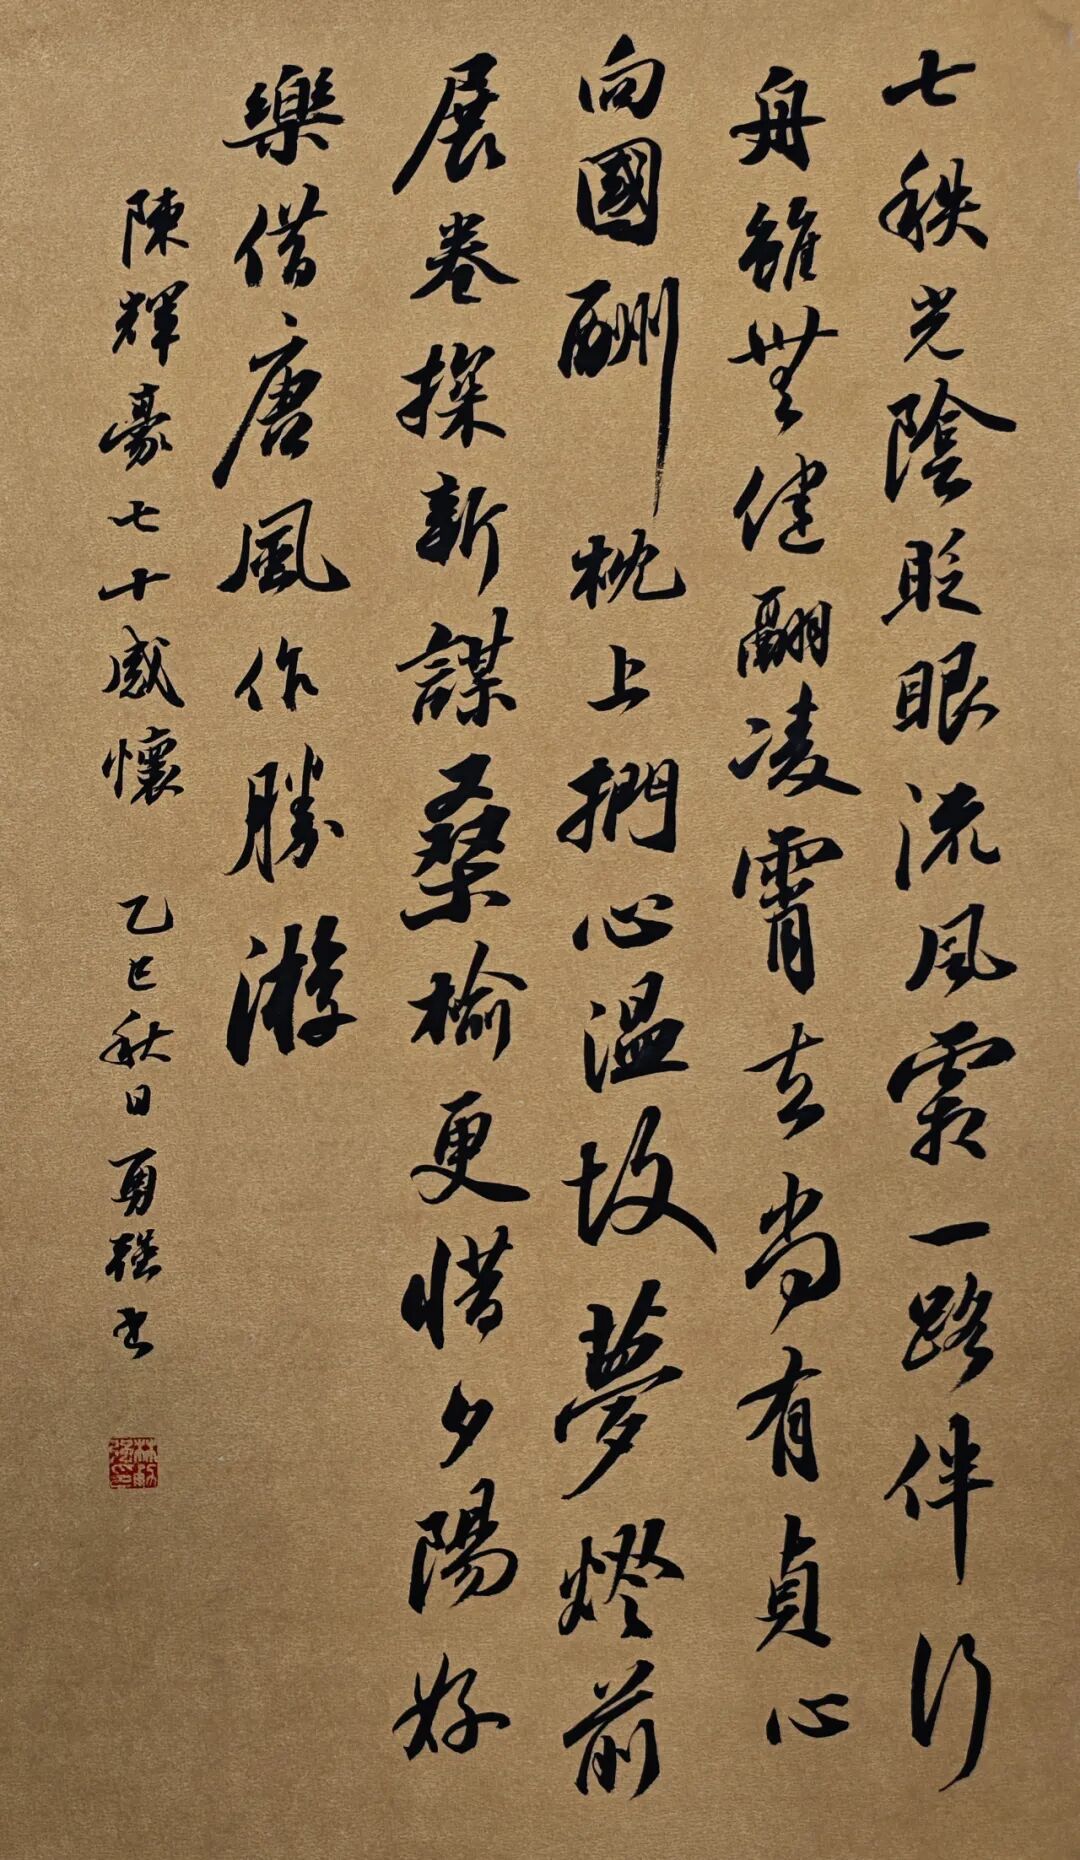 七秩光陰眨眼流風霜一路伴行
舟雖無健翮凌霄去尚有貞心
向國酬枕上捫心溫故夢燈前
展卷探新謀桑榆更惜夕陽好
樂借唐風作勝游
陳輝豪七十感懷 乙巳秋日勇強書